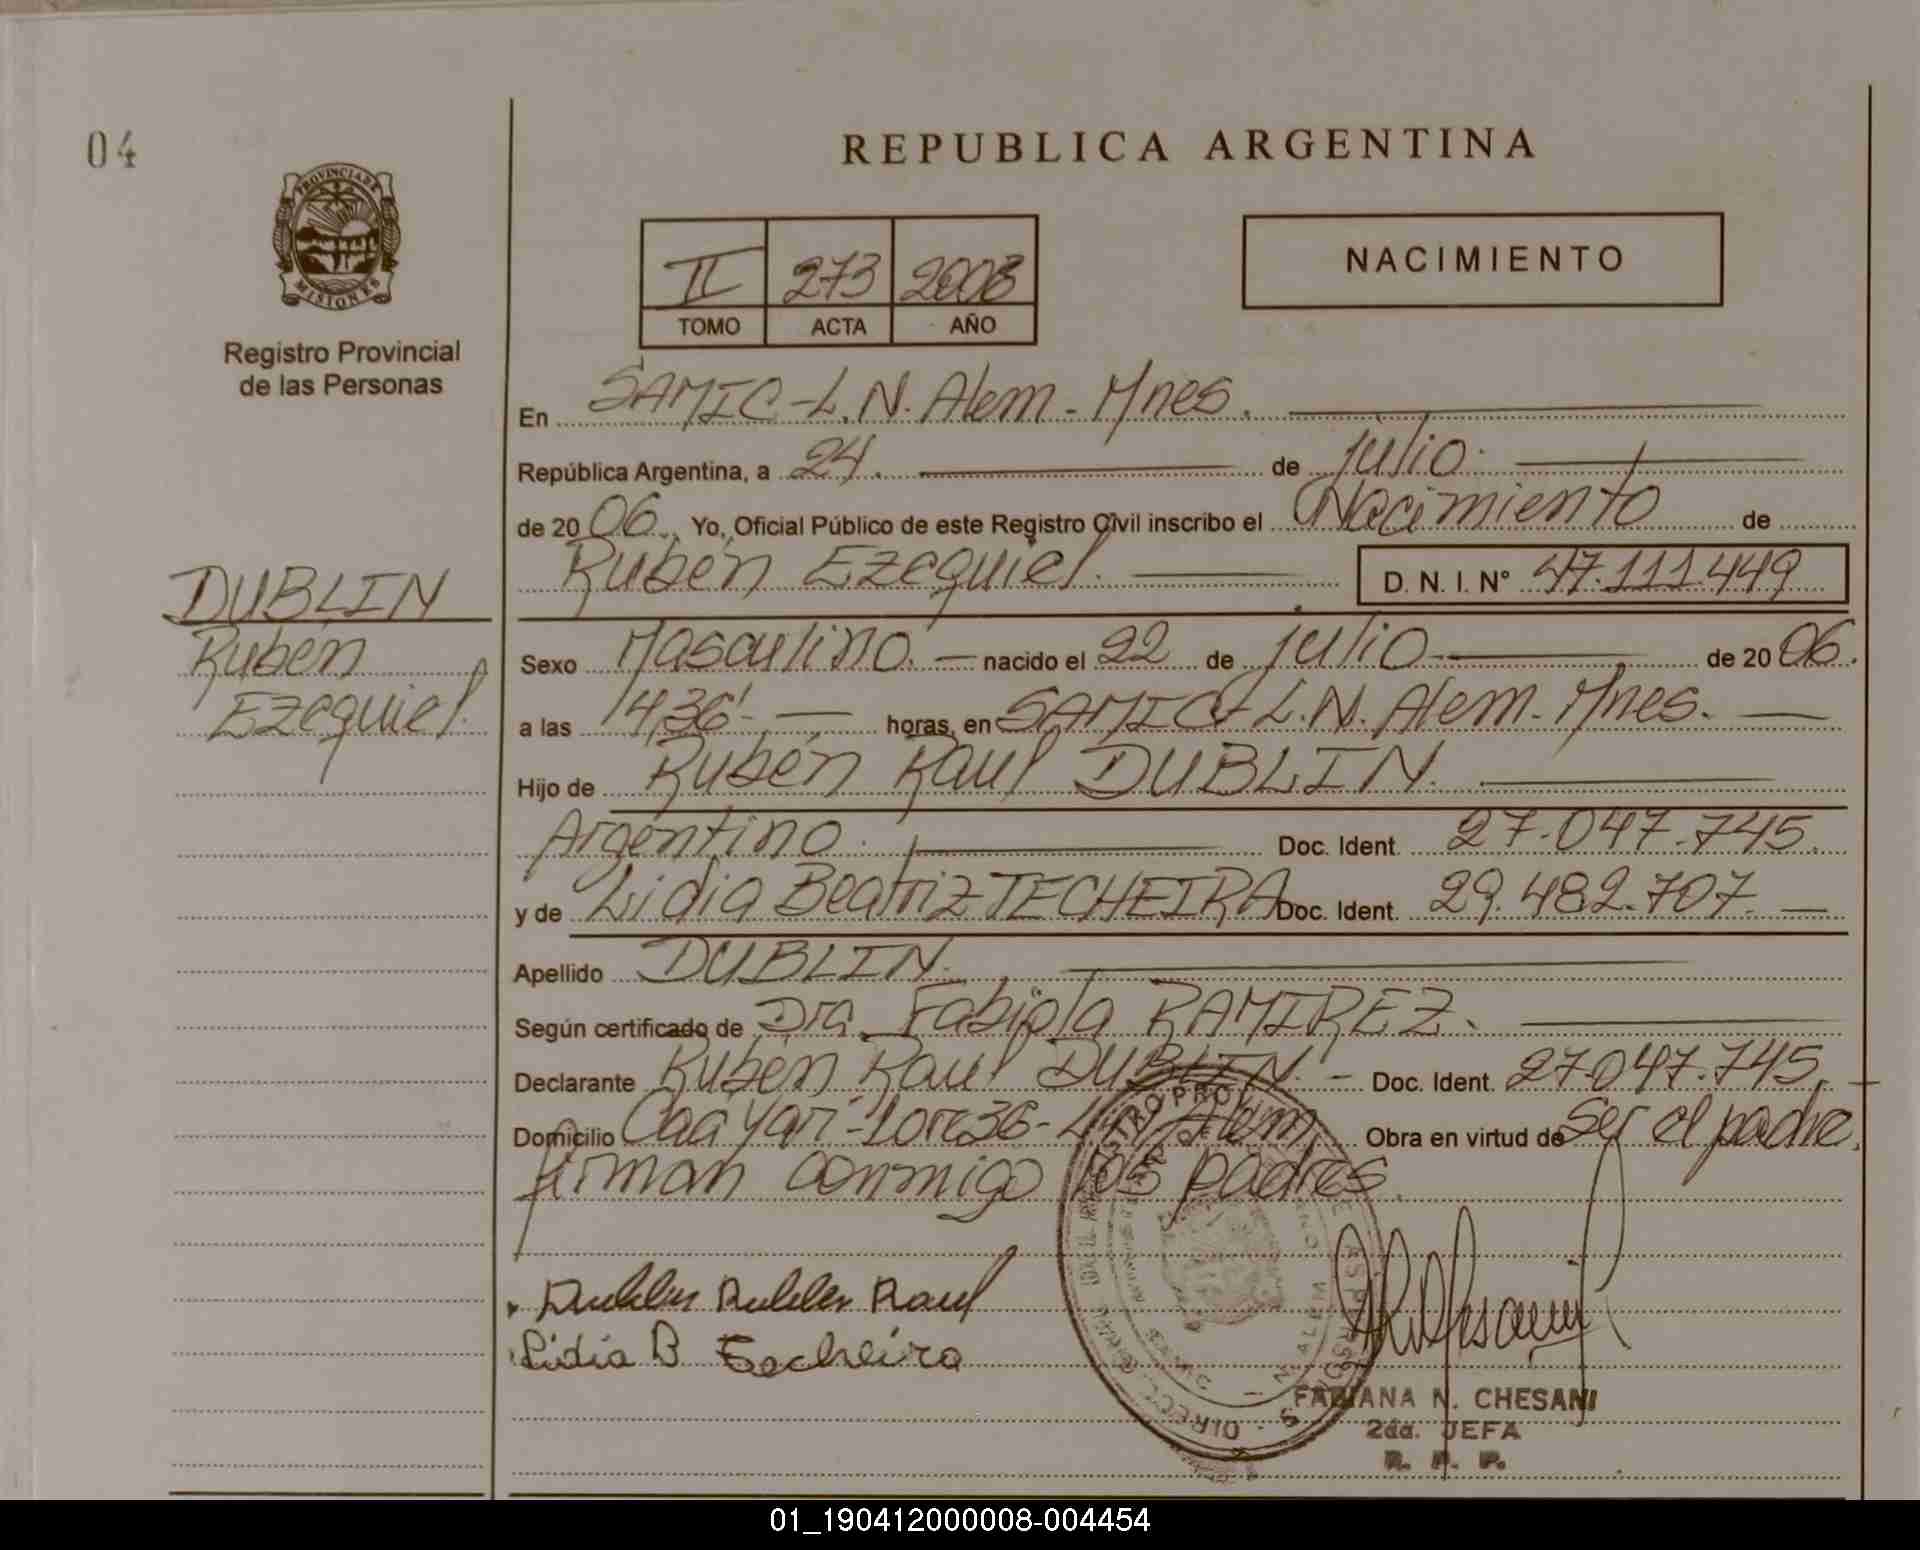 04
REPUBLICA ARGENTINA
PROVINCIA DE
MISIONES
Registro Provincial
de las Personas
II 273
TOMO ACTA AÑO
NACIMIENTO
En SAMIC-L.N. Alem - Mnes.
República Argentina, a 24. de julio.
de 2006. Yo, Oficial Público de este Registro Civil inscribo el Nacimiento de
Rubén Ezequiel. D. N. I. Nº 47.111.449
DUBLIN
Rubén
Ezequiel.
Sexo Masculino. nacido el 22 de julio de 2006.
a las 14,36'- horas, en SAMIC-L.N. Alem - Mnes.
Hijo de Rubén Raul DUBLIN.
Argentino. Doc. Ident. 27.047.745.
y de Lidia Beatriz TECHEIRA Doc. Ident. 29.482.707.
Apellido DUBLIN.
Según certificado de Dra. Fabiola RAMIREZ.
Declarante Rubén Raul DUBLIN. - Doc. Ident. 27.047.745.
Domicilio Caá Yarí - Alem, Obra en virtud de Ser el padre.
firman conmigo los padres.
Raul
Lidia B Techeira
FABIANA N. CHESANI
2da. JEFA
R. P. P.
01_190412000008-004454